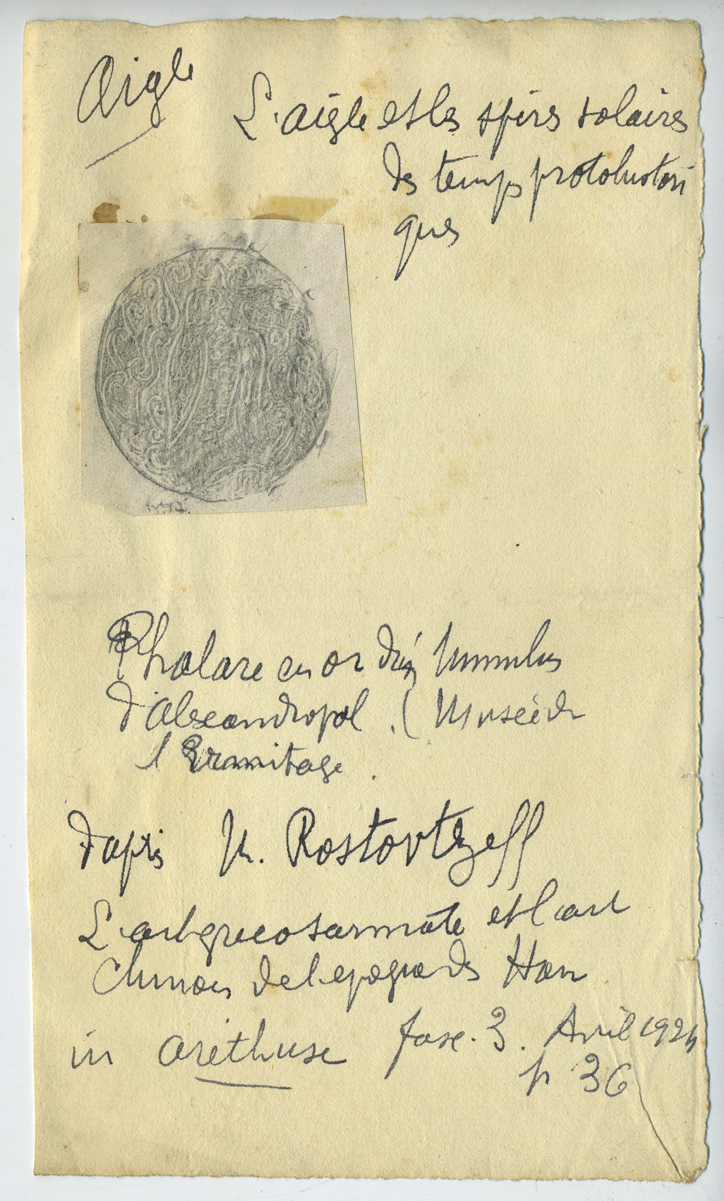 Aigle
L'aigle et les spires solaires
des temps protohistori
ques
Phalare en or d'un tumulus
d'Alexandropol. (Musée de
l'Ermitage.
d'après M. Rostovtzeff
L'art greco sarmate et l'art
chinois de l'epoque des Han
in Aréthuse fasc. 3. Avril 1924
p 36